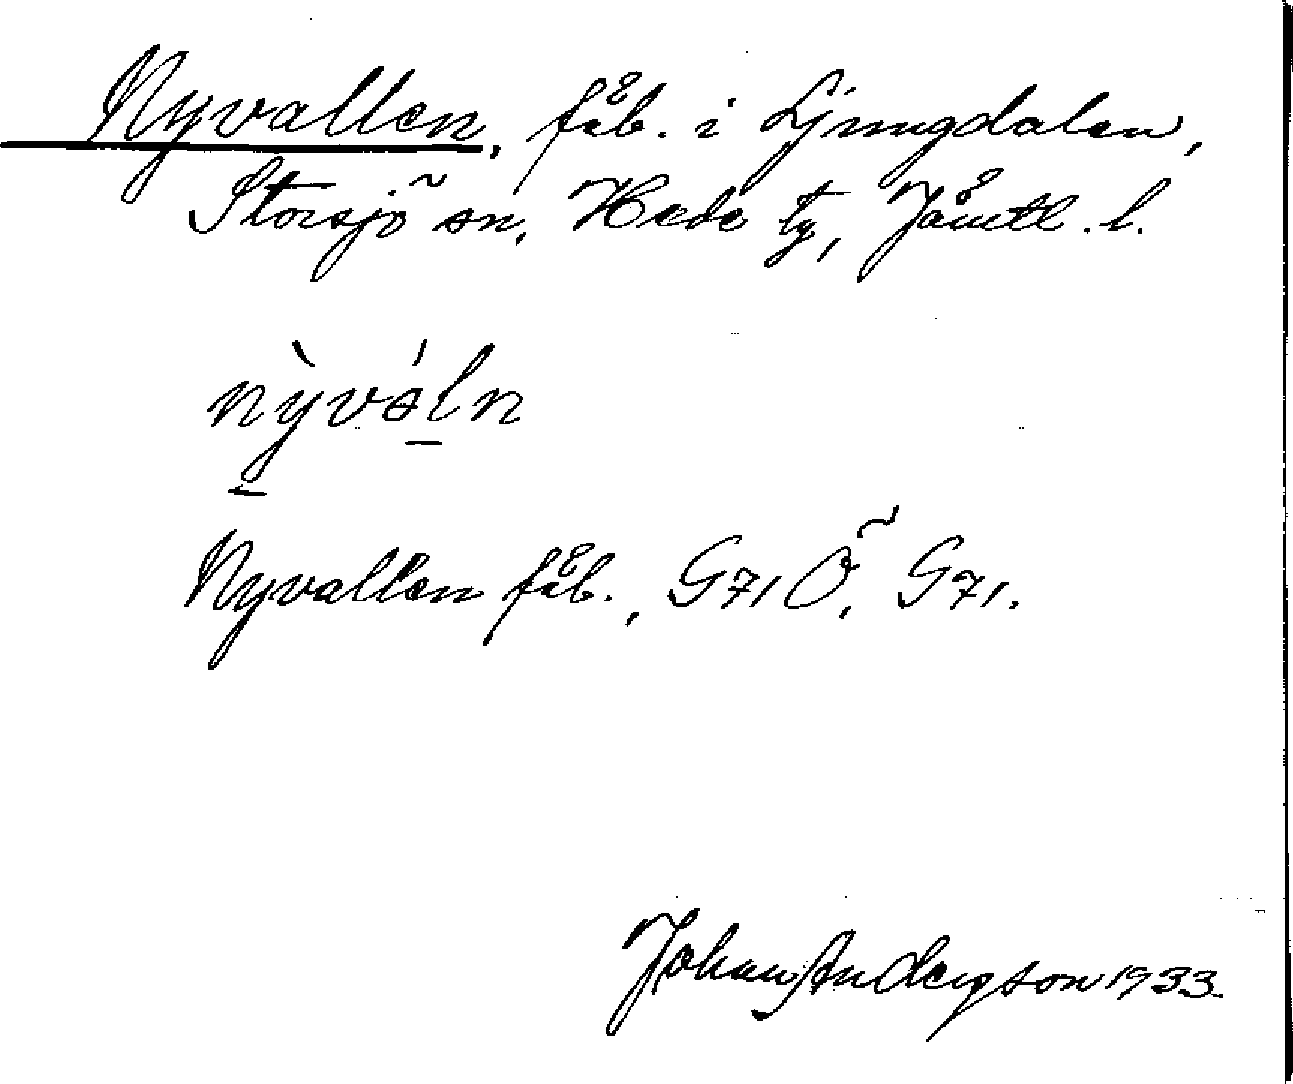 Nyvallen, fåb. i Ljungdalen,
Storsjö sn, Hede tg, Jämtl. l.
nỳváln
Nyvallen fåb., G71 Ö, G71.
Johan Anderson 1933.